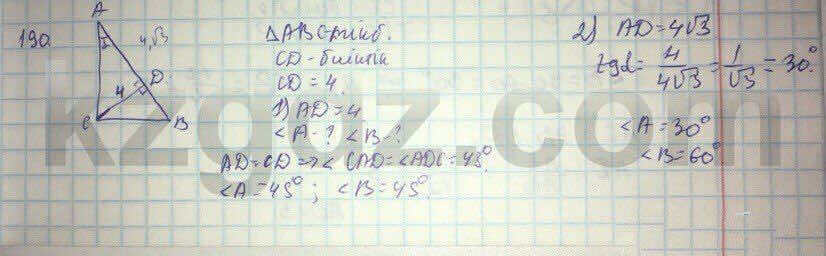 190.
A
4√3
4
D
C
B
ΔABC
CD
CD = 4.
1) AD = 4
<A-? <B-?
AD=CD => < CAD = <ADC = 45°
<A = 45° ; <B = 45°.
2) AD = 4√3
tgα = 4/4√3 = 1/√3 = 30°.
<A = 30°
<B = 60°
kzgdz.com